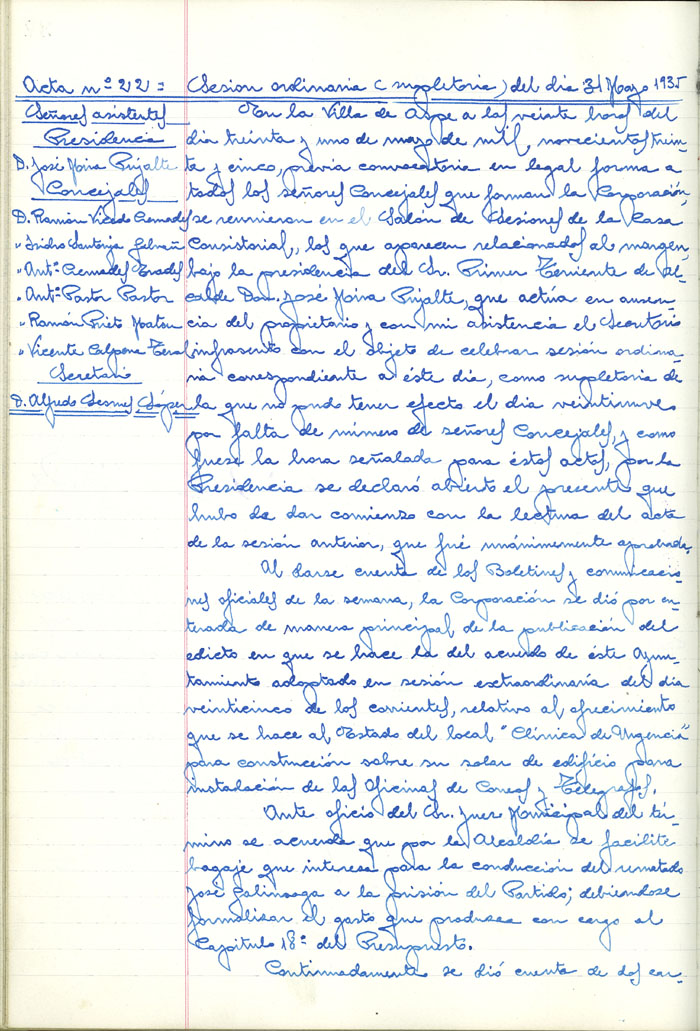 Acta nº 22 = Sesion ordinaria (supletoria) del dia 31 Mayo 1935
Señores asistentes
Presidencia
D. José Mira Pujalte
Concejales
D. Ramón Vicedo Cremades
" Isidro Santonja Galvañ
" Antº Cremades
" Antº Pastor Pastor
" Ramón Prieto
" Vicente Calpena
Secretario
D. Alfredo López
En la Villa de Aspe a las veinte horas del
dia treinta y uno de mayo de mil, novecientos trein-
ta y cinco, previa convocatoria en legal forma a
todos los señores Concejales que forman la Corporación,
se reunieron en el Salón de Sesiones de la Casa
Consistorial, los que aparecen relacionados al margen,
bajo la presidencia del Sr. Primer Teniente de Al-
calde Don José Mira Pujalte, que actúa en ausen-
cia del propietario y con mi asistencia el Secretario
infrascrito con el objeto de celebrar sesión ordina-
ria correspondiente a éste día, como supletoria de
la que no pudo tener efecto el dia veintinueve
por falta de número de señores Concejales, y como
fuese la hora señalada para éstos actos, por la
Presidencia se declaró abierto el presente que
hubo de dar comienzo con la lectura del acta
de la sesión anterior, que fué unánimemente aprobada.
Al darse cuenta de los Boletines y comunicacio-
nes oficiales de la semana, la Corporación se dió por en-
terada de manera principal, de la publicación del
edicto en que se hace la del acuerdo de éste Ayun-
tamiento adoptado en sesión extraordinaria del dia
veinticinco de los corrientes, relativo al ofrecimiento
que se hace al Estado del local "Clínica de Urgencia"
para construcción sobre su solar de edificio para
instalación de las Oficinas de Correos y Telégrafos.
Ante oficio del Sr. Juez Municipal del tér-
mino se acuerda que por la Alcaldía se facilite
bagaje que interesa para la conducción del rematado
José Galinsoga a la prisión del Partido; debiéndose
formalizar el gasto que produzca con cargo al
Capitulo 18º del Presupuesto.
Continuadamente se dió cuenta de dos car-